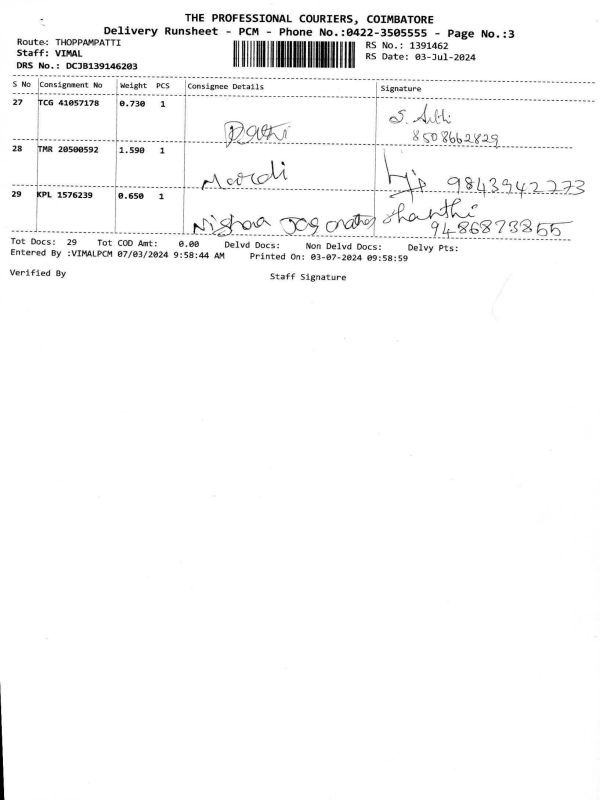 THE PROFESSIONAL COURIERS, COIMBATORE
Delivery Runsheet - PCM - Phone No.:0422-3505555 - Page No.:3
Route: THOPPAMPATTI
RS No.: 1391462
Staff: VIMAL
RS Date: 03-Jul-2024
DRS No.: DCJB139146203
S No Consignment No Weight PCS Consignee Details Signature
27 TCG 41057178 0.730 1
8508662829
28 TMR 20500592 1.590 1
9843942273
29 KPL 1576239 0.650 1
Shanthi
9486873855
Tot Docs: 29 Tot COD Amt: 0.00 Delvd Docs: Non Delvd Docs: Delvy Pts:
Entered By :VIMALPCM 07/03/2024 9:58:44 AM Printed On: 03-07-2024 09:58:59
Verified By Staff Signature